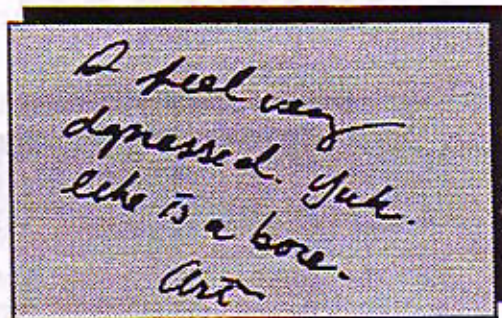 I feel very
depressed. Yuk.
life is a bore.
Art